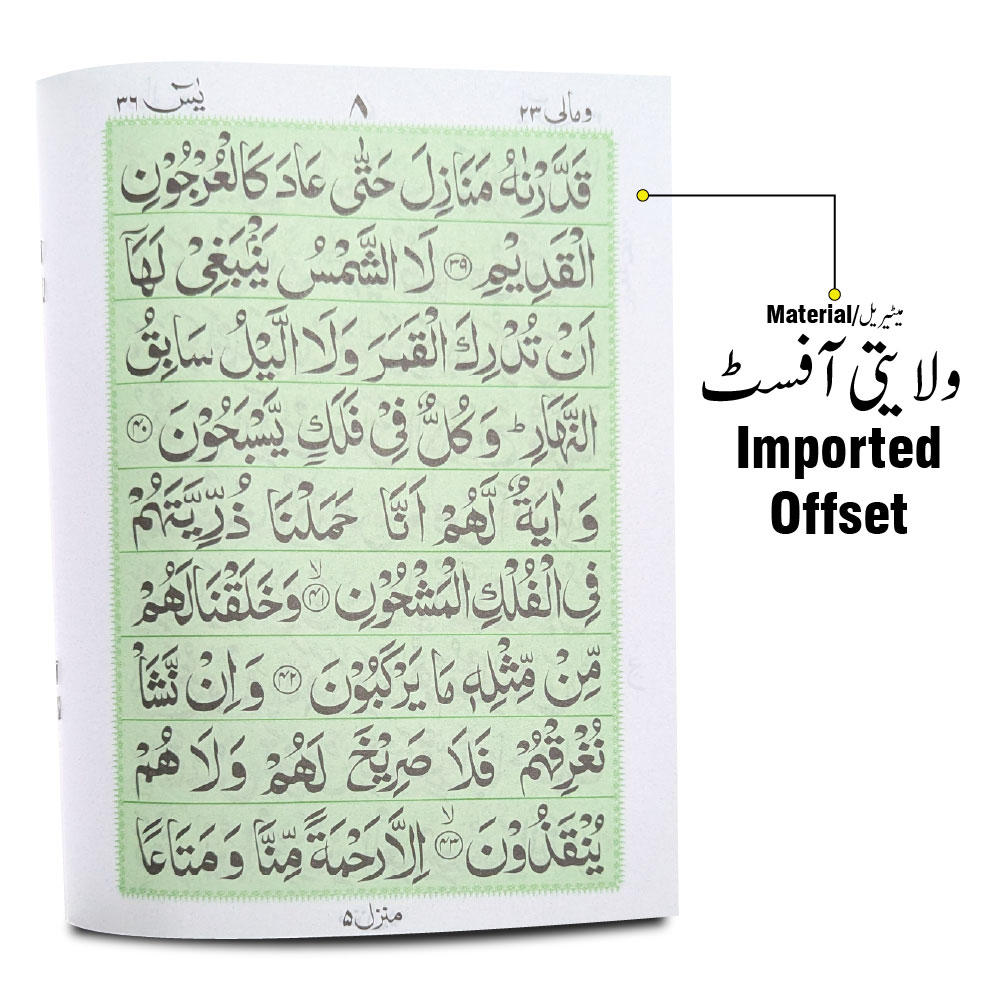 یٰسٓ ۳۶
۸
ومالی ۲۳
قَدَّرْنٰهُ مَنَازِلَ حَتّٰی عَادَ کَالْعُرْجُوْنِ
الْقَدِیْمِ ﴿۳۹﴾ لَا الشَّمْسُ یَنْۢبَغِیْ لَهَاۤ
اَنْ تُدْرِكَ الْقَمَرَ وَلَا الَّیْلُ سَابِقُ
النَّهَارِ ؕ وَکُلٌّ فِیْ فَلَكٍ یَّسْبَحُوْنَ ﴿۴۰﴾
وَ اٰیَةٌ لَّهُمْ اَنَّا حَمَلْنَا ذُرِّیَّتَهُمْ
فِی الْفُلْكِ الْمَشْحُوْنِ ﴿۴۱﴾ۙ وَخَلَقْنَا لَهُمْ
مِّنْ مِّثْلِهٖ مَا یَرْکَبُوْنَ ﴿۴۲﴾ وَاِنْ نَّشَاْ
نُغْرِقْهُمْ فَلَا صَرِیْخَ لَهُمْ وَلَا هُمْ
یُنْقَذُوْنَ ﴿۴۳﴾ۙ اِلَّا رَحْمَةً مِّنَّا وَمَتَاعًا
منزل ۵
Material/میٹیریل
ولایتی آفسٹ
Imported
Offset